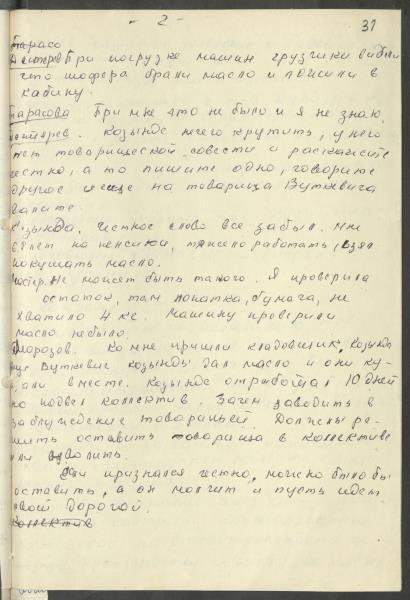 - 2 -
31
Тарасо
Дегтярев При погрузке машин грузчики видели
что шофера брали масло и носили в
кабину.
Тарасова При мне это не было и я не знаю
Дегтярев. Козынде нечего крутить, у него
нет товарищеской совести и расскажите
честно, а то пишите одно, говорите
другое и еще на товарища Вуткевича
валите.
Козында, честное слово все забыл. Мне
лет на пенсии, тяжело работать, взял
покушать масло.
Мастер. Не может быть такого. Я проверила
остаток, там лопатка, бумага, не
хватило 4 кг. Машину проверили
масло не было.
Морозов. Ко мне пришли кладовщик, Козында
еще Вуткевич козынды дал масло и они ку-
шали вместе. Козында отработал 10 дней
но подвел коллектив. Зачем заводить в
заблуждение товарищей. Должны ре-
шить оставить товарища в коллективе
или уволить.
Сам признался честно, можно было бы
оставить, а он молчит и пусть идет
своей дорогой.
Коллектив